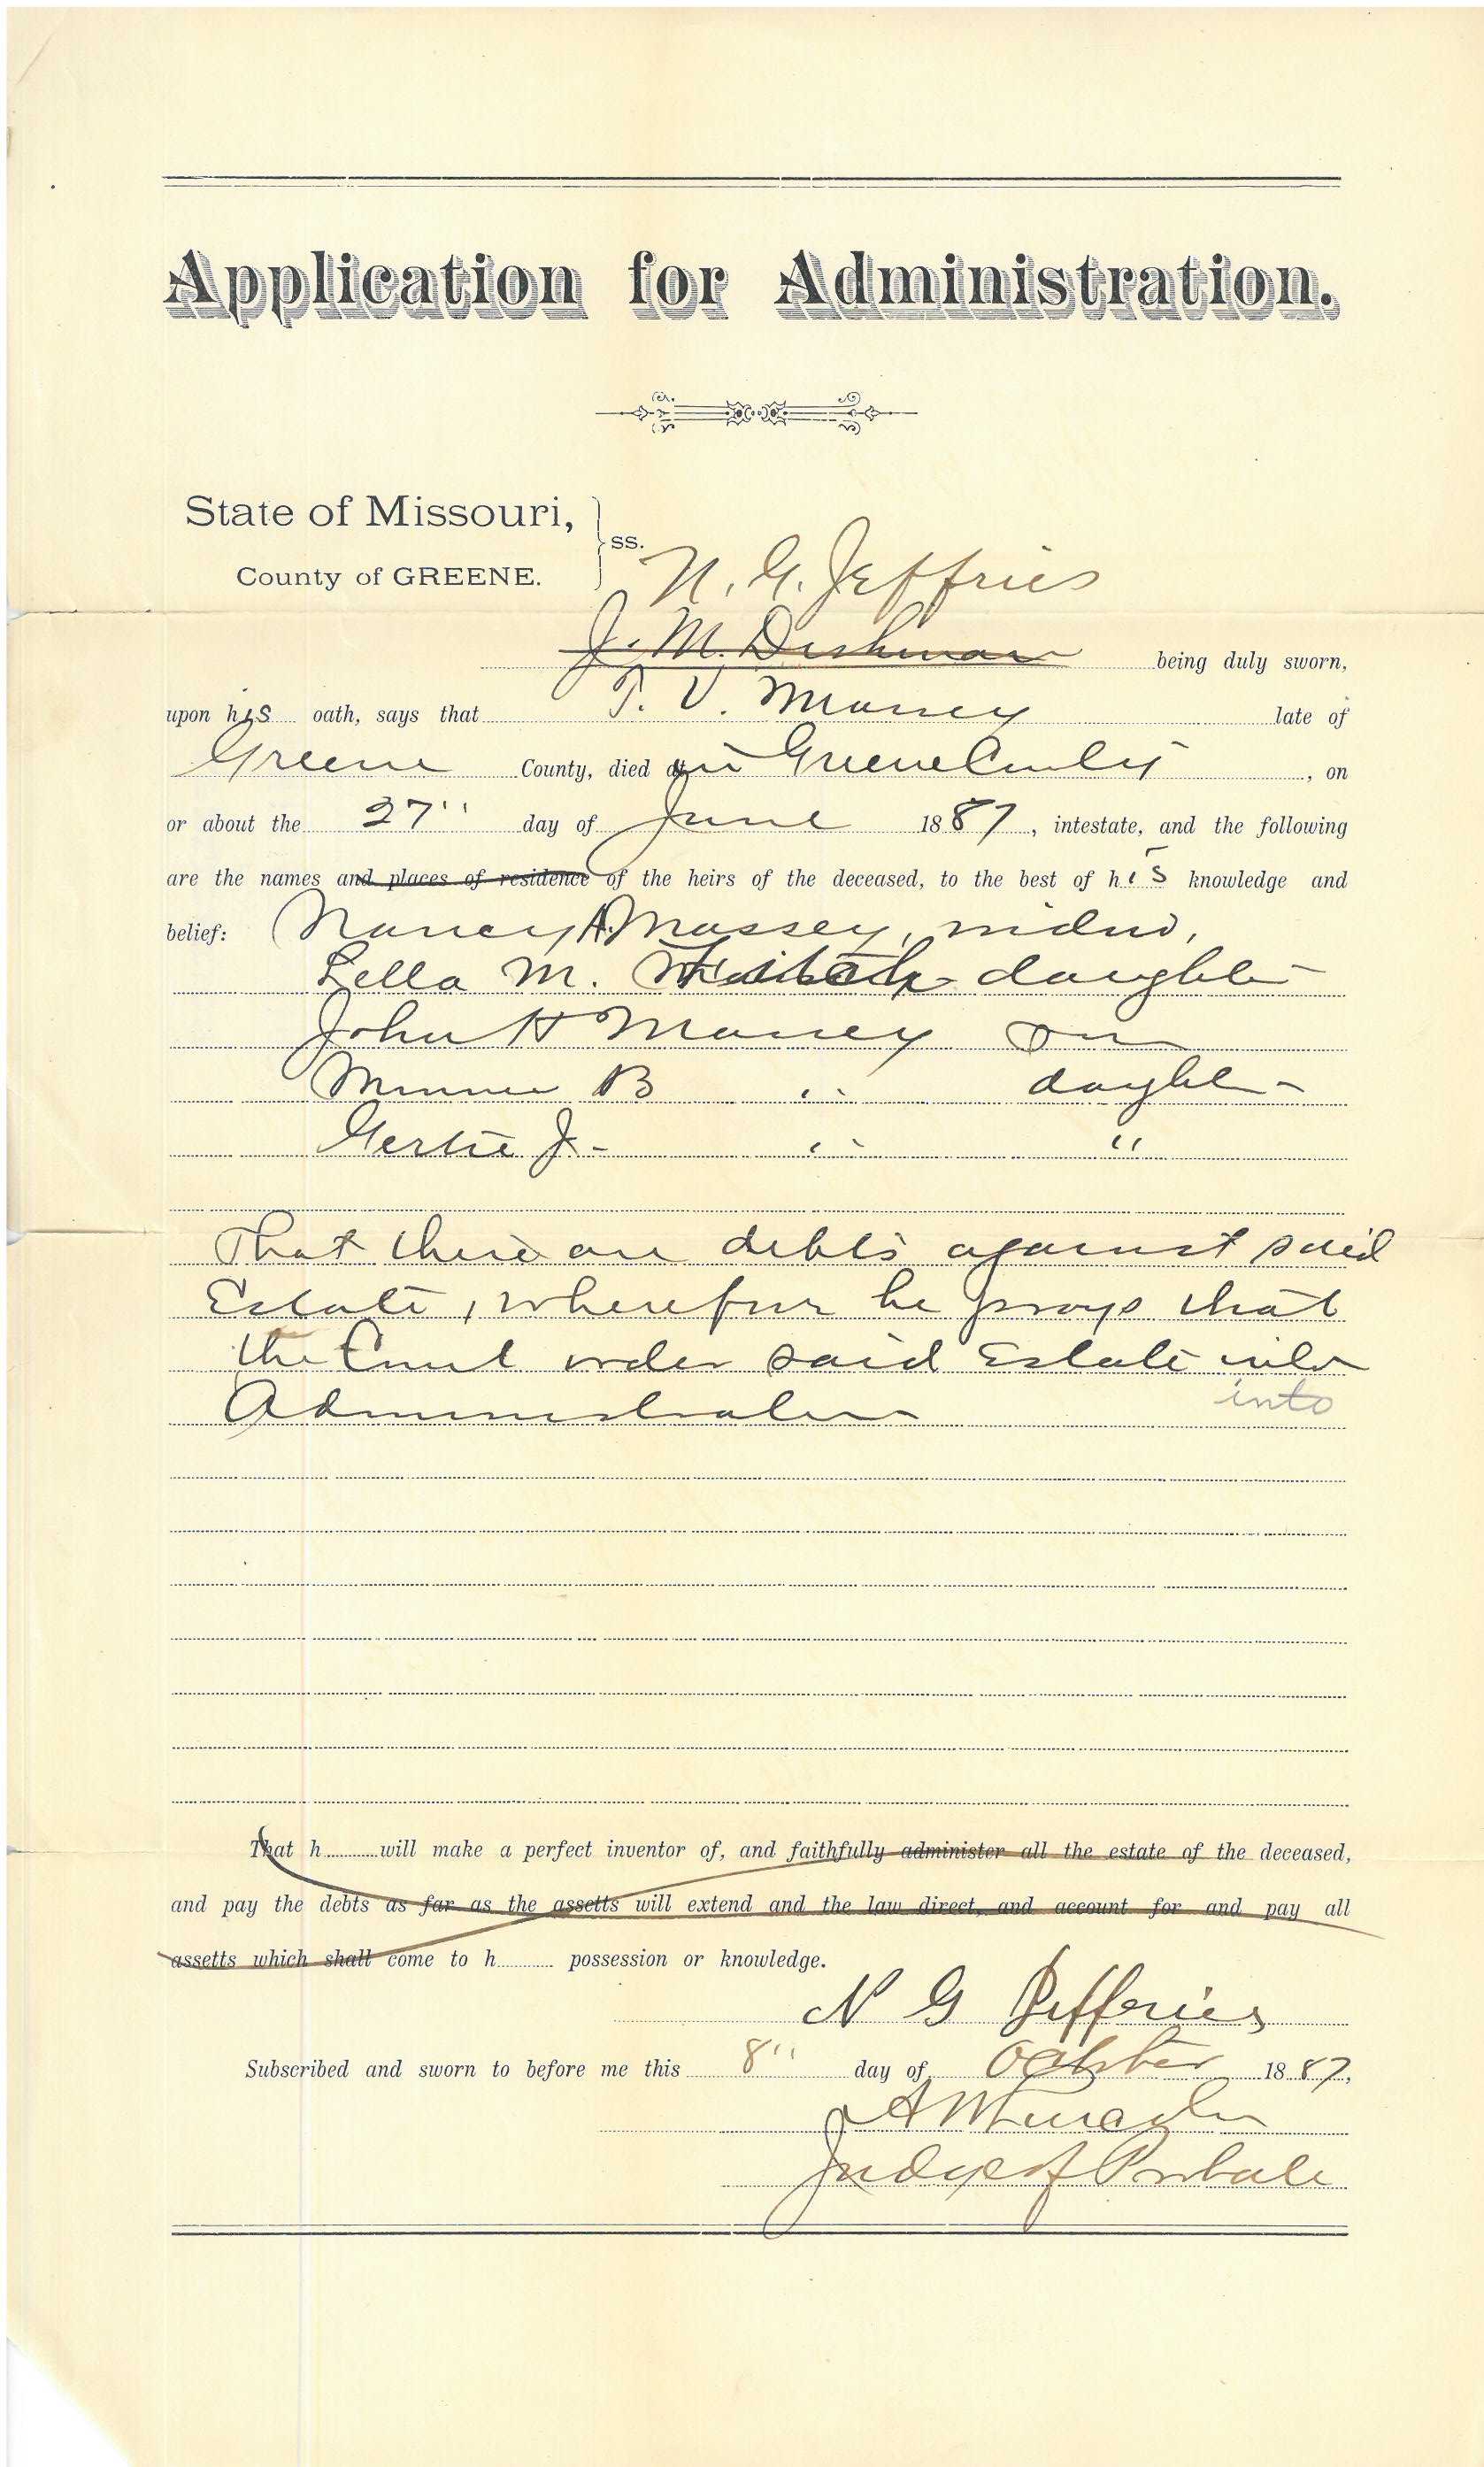 Application for Administration.
State of Missouri,
County of GREENE.
ss.
N. G. Jeffries
J. M. Dishman being duly sworn,
upon his oath, says that T. V. Massey late of
Greene County, died in Greene County, on
or about the 27" day of June 1887, intestate, and the following
are the names and places of residence of the heirs of the deceased, to the best of his knowledge and
belief: Nancy A. Massey, widow,
Lella M. daughter
John H Massey son
Minnie B " daughter
Gertie J. " "
That there are debts against said
Estate, wherefore he prays that
the Court order said Estate into
Administration into
That h will make a perfect inventor of, and faithfully administer all the estate of the deceased,
and pay the debts as far as the assetts will extend and the law direct, and account for and pay all
assetts which shall come to h possession or knowledge.
N G Jefferies
Subscribed and sworn to before me this 8" day of October 1887,
Judge of Probate